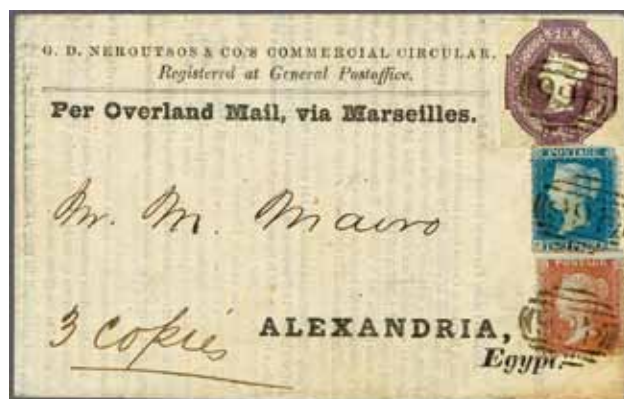 G. D. NEROUTSOS & CO.'S COMMERCIAL CIRCULAR.
Registered at General Postoffice.
Per Overland Mail, via Marseilles.
Mr. M. Mavro
3 copies
ALEXANDRIA,
Egypt.
POSTAGE
POSTAGE